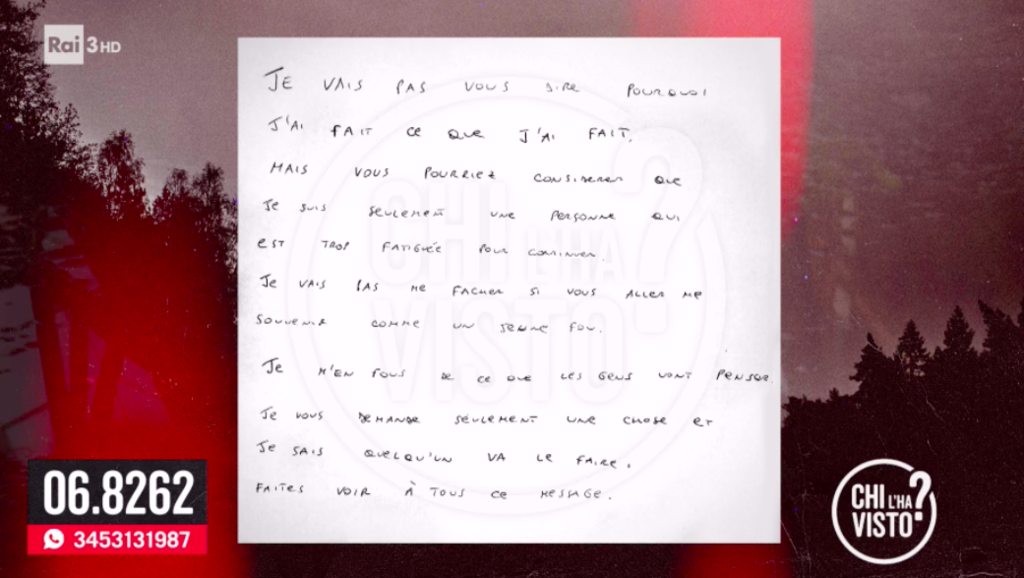 Rai 3 HD
JE VAIS PAS VOUS DIRE POURQUOI
J'AI FAIT CE QUE J'AI FAIT.
MAIS VOUS POURRIEZ CONSIDERER QUE
JE SUIS SEULEMENT UNE PERSONNE QUI
EST TROP FATIGUÉE POUR CONTINUER.
JE VAIS PAS ME FACHER SI VOUS ALLER ME
SOUVENIR COMME UN JEUNE FOU.
JE M'EN FOUS DE CE QUE LES GENS VONT PENSER.
JE VOUS DEMANDE SEULEMENT UNE CHOSE ET
JE SAIS QUELQU'UN VA LE FAIRE.
FAITES VOIR À TOUS CE MESSAGE.
CHI L'HA VISTO?
06.8262
3453131987
CHI L'HA
VISTO?